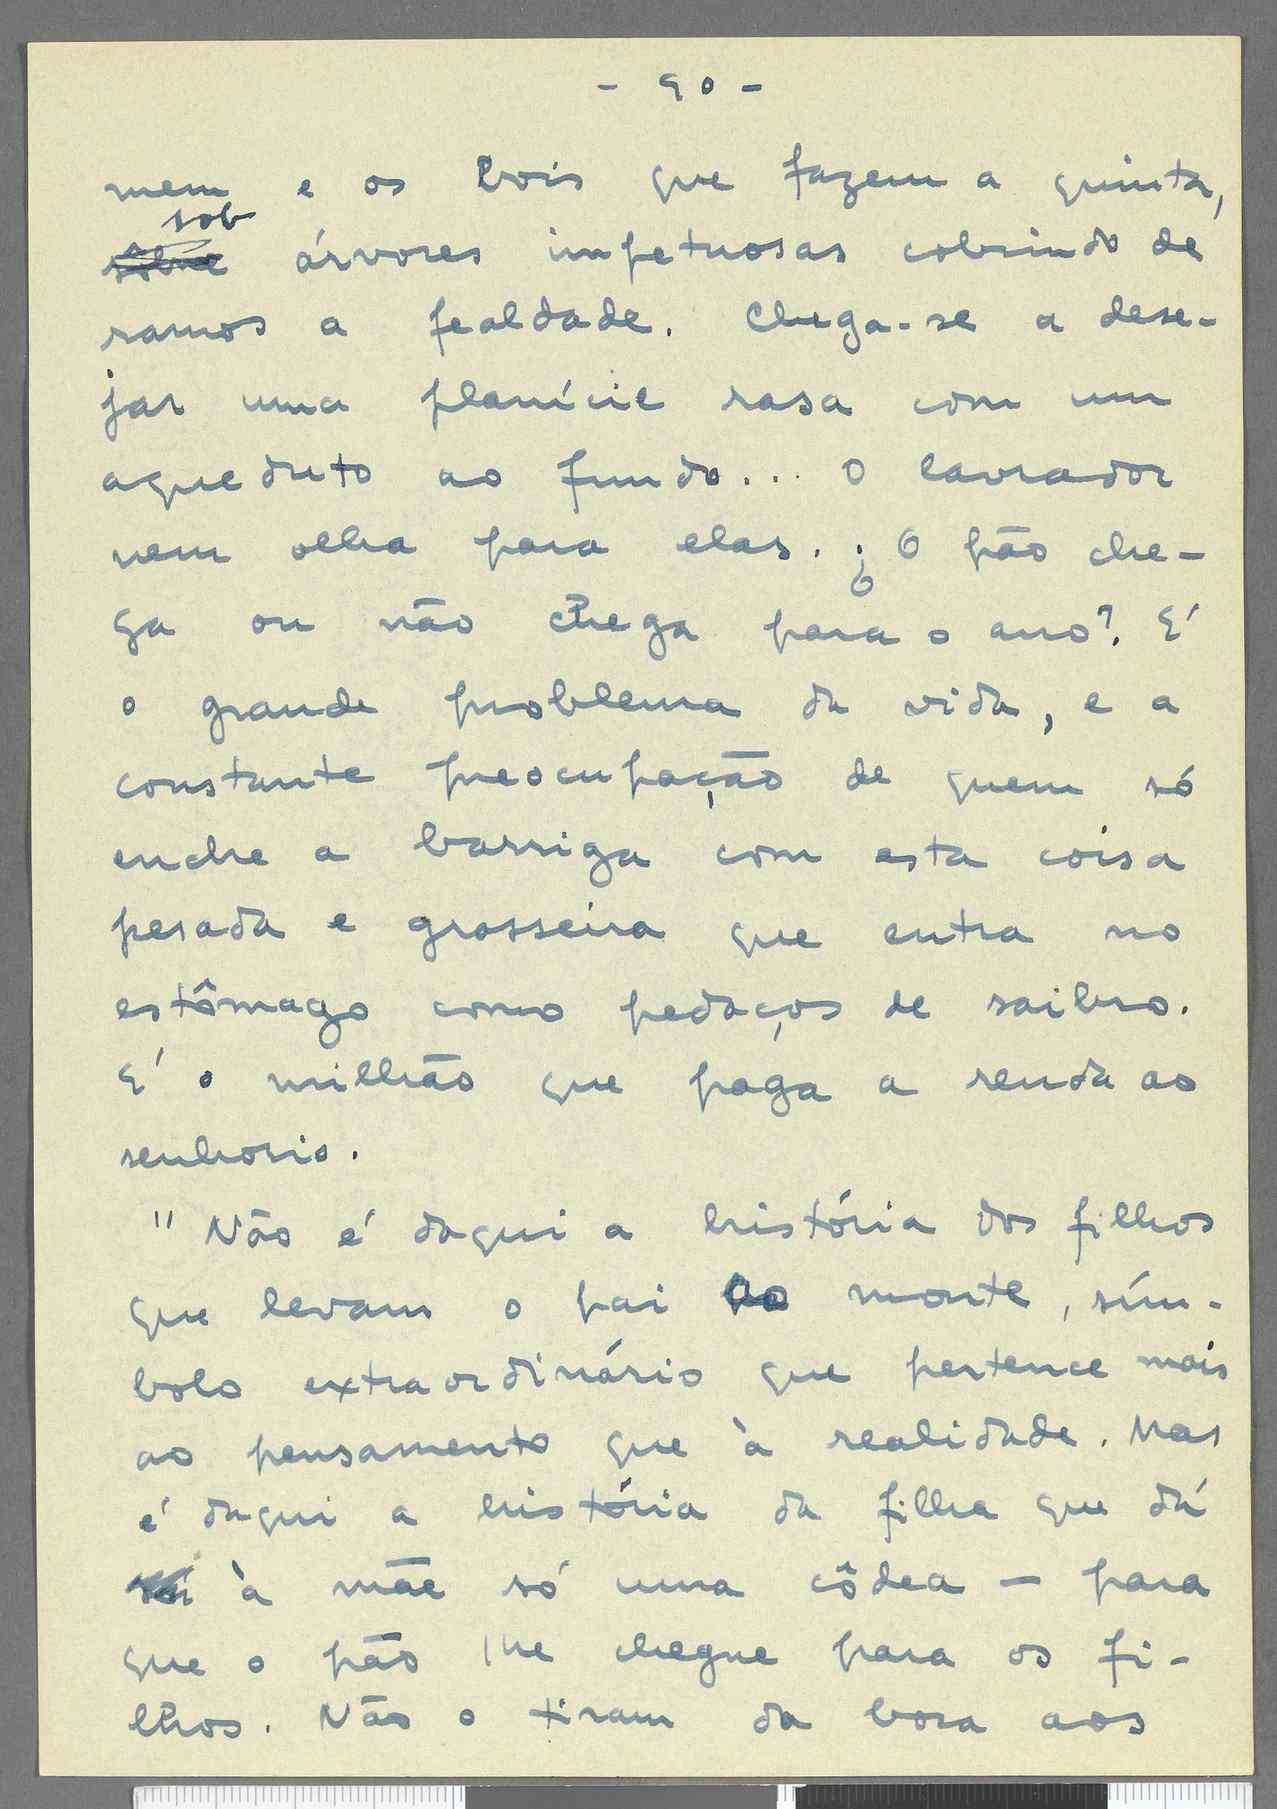 - 90 -
mem e os bois que fazem a quinta,
sob
sobre árvores impetuosas cobrindo de
ramos a fealdade. Chega-se a dese-
jar uma planície rasa com um
aqueduto ao fundo... O lavrador
nem olha para elas. ¿O pão che-
ga ou não chega para o ano?. E'
o grande problema da vida, e a
constante preocupação de quem só
enche a barriga com esta coisa
pesada e grosseira que entra no
estômago como pedaços de saibro.
E' o milhão que paga a renda ao
senhorio.
" Não é daqui a história dos filhos
que levam o pai ao monte, sím-
bolo extraordinário que pertence mais
ao pensamento que à realidade. Mas
é daqui a história da filha que dá
à mãe só uma côdea — para
que o pão lhe chegue para os fi-
lhos. Não o tiram da boca aos